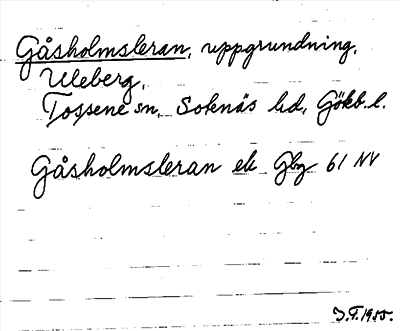 Gåsholmsleran, uppgrundning,
Uleberg,
Tossene sn, Sotenäs hd, Göb. l.
Gåsholmsleran ek Gbg 61 NV
J.F. 1985.